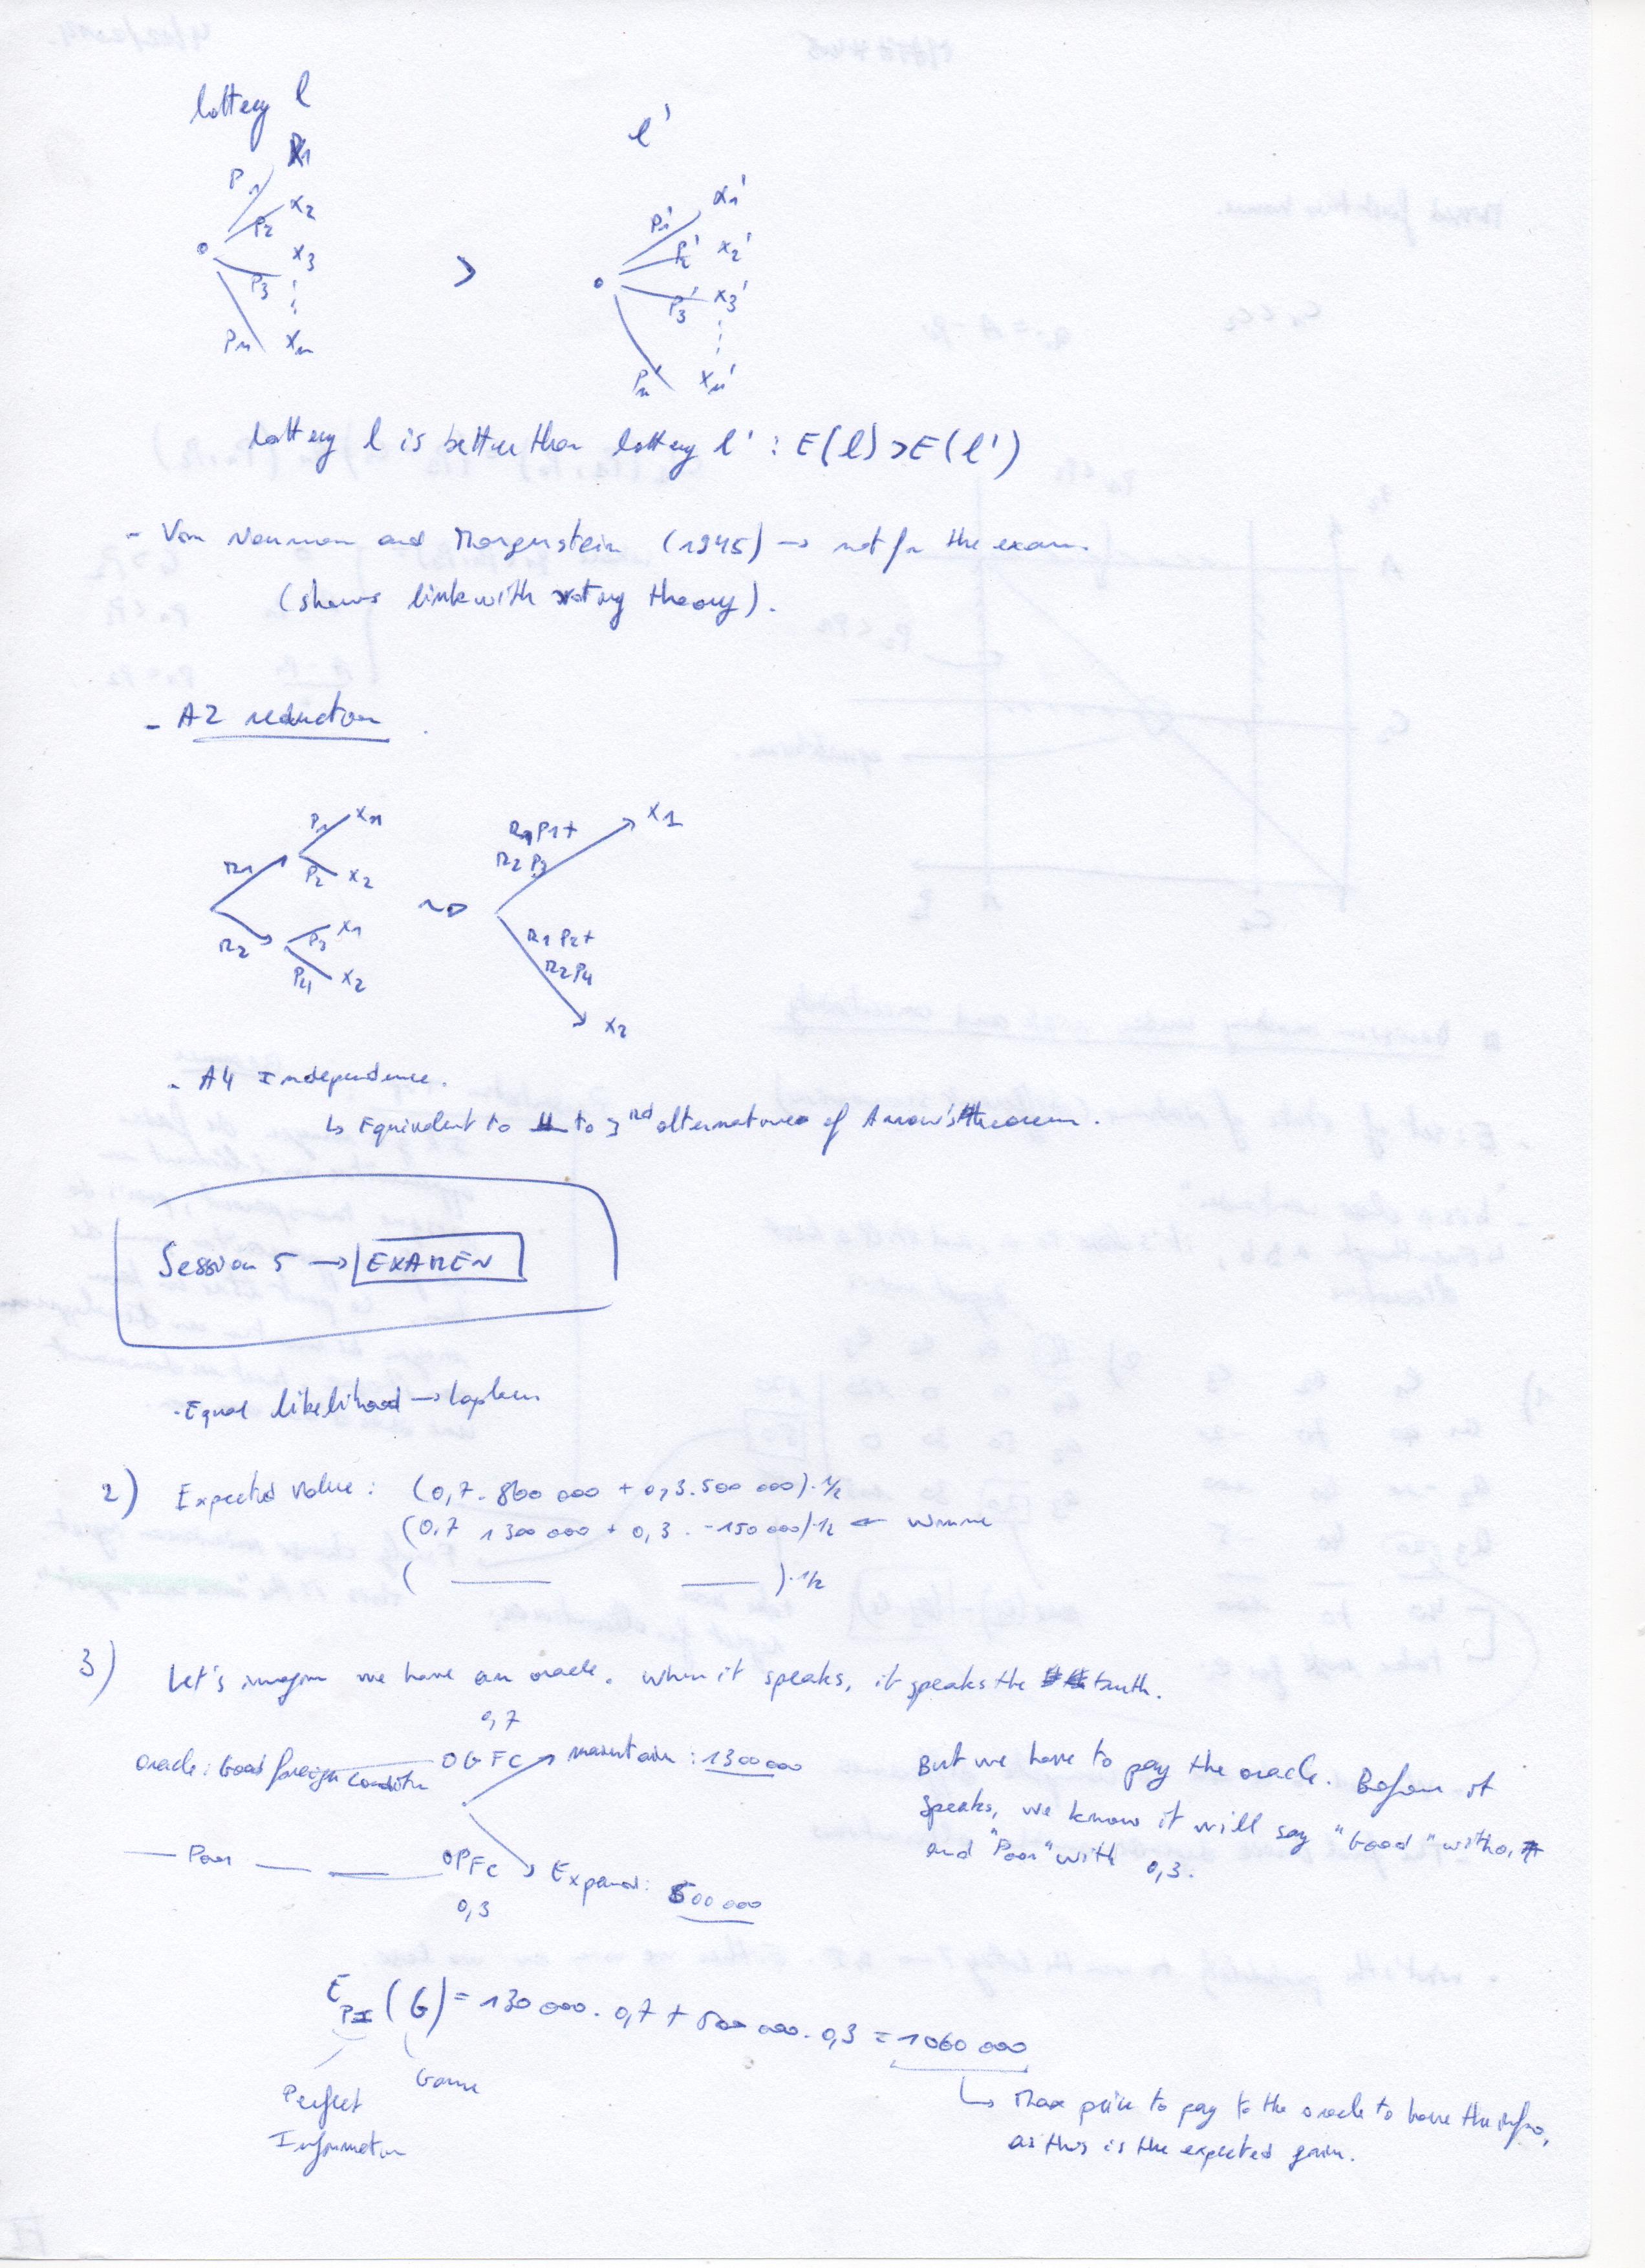 lottery l
l'
P1 X1
P2 x2
P3 x3
Pn xn
>
P1' x1'
P2' x2'
P3' x3'
Pn' xn'
lottery l is better than lottery l' : E(l) > E(l')
- Von Neumann and Morgenstein (1945) → not for the exam.
(shows link with voting theory).
- A2 reduction
R1 P1 x1
P2 x2
R2 P3 x1
P4 x2
R1P1+
R2P3
x1
R1P2+
R2P4
x2
- A4 Independence.
↳ Equivalent to to 3rd alternatives of Arrow's theorem.
Session 5 → EXAMEN
- Equal likelihood → Laplace
2) Expected value : (0,7. 800 000 + 0,3. 500 000).1/2
(0,7 1 300 000 + 0,3 . -150 000).1/2 ← winner
( ).1/2
3) Let's imagin we have an oracle. When it speaks, it speaks the truth.
0,7
oracle : Good foreign condition OGFC maintain : 1300 000
Poor OPFC Expand : 500 000
0,3
But we have to pay the oracle. Before it
speaks, we know it will say "Good" with 0,7
and "Poor" with 0,3.
E PI (G) = 130 000. 0,7 + 500 000. 0,3 = 1060 000
Perfect
Information
Game
↳ Max price to pay to the oracle to have the info,
as this is the expected gain.